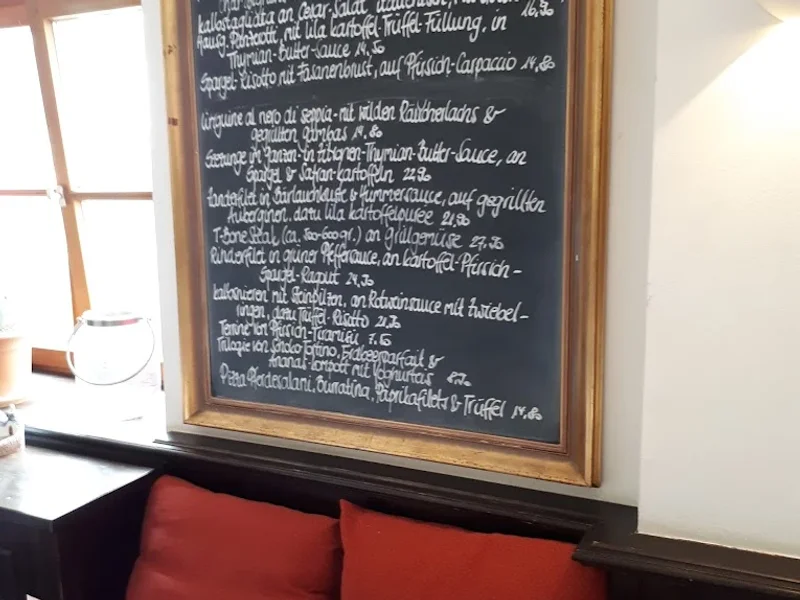 Kalbstagliata an Cesar-Salat 16,90
Hausg. Panzerotti, mit lila Kartoffel-Trüffel-Füllung, in
Thymian-Butter-Sauce 14,50
Spargel-Risotto mit Fasanenbrust, auf Pfirsich-Carpaccio 14,80
Linguine al nero di seppia mit wilden Räucherlachs &
gegrillten Gambas 14,80
Seezunge im Ganzen in Zitronen-Thymian-Butter-Sauce, an
Spargel & Safran-Kartoffeln
Zanderfilet in Bärlauchkruste & Hummersauce, auf gegrillten
Auberginen, dazu lila Kartoffelpüree 21,90
T-Bone Steak (ca. 500-600 gr.) an Grillgemüse
Rinderfilet in grüner Pfeffersauce, an Kartoffel-Pfirsich-
Spargel-Ragout
Kalbsnieren mit Steinpilzen, an Rotweinsauce mit Zwiebel-
ringen, dazu Trüffel-Risotto
Terrine von Pfirsich-Tiramisu 7,50
Trilogie von Schoko-Tortino, Erdbeerparfait &
Ananas-Kompott mit Yoghurteis
Pizza Pferdesalami, Burratina, Paprikafilets & Trüffel 14,80